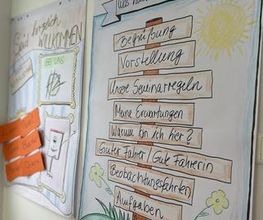 herzlich
WILLKOMMEN
BEI UNS
Begrüßung
Vorstellung
Unsere Seminarregeln
Meine Erwartungen
Warum bin ich hier?
Guter Fahrer / Gute Fahrerin
Beobachtungsfahrten
Aufgaben